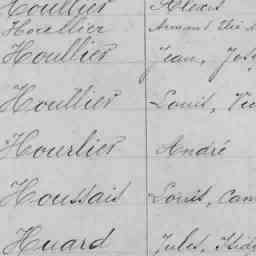 Houllier Alexis
Houllier Armand Elie
Houllier Jean, Jos
Houllier Louis, Vi
Hourlier André
Houssais Louis, Cam
Huard Jules, Isido